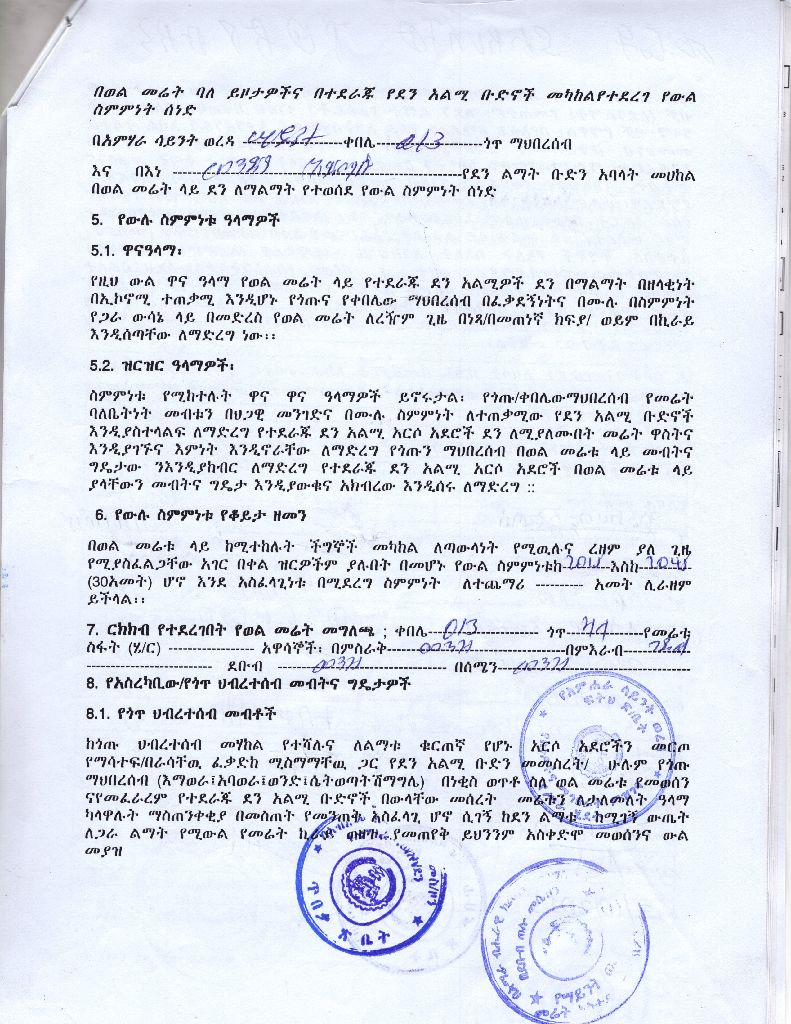 በወል መሬት ባለ ይዞታዎችና በተደራጁ የደን አልሚ ቡድኖች መካከልየተደረገ የውል
ስምምነት ሰነድ
በአምሃራ ሳይንት ወረዳ ----ቀበሌ--- 013 ---ጎጥ ማህበረሰብ
እና በእነ ----የደን ልማት ቡድን አባላት መሀከል
በወል መሬት ላይ ደን ለማልማት የተወሰደ የውል ስምምነት ሰነድ
5. የውሉ ስምምነቱ ዓላማዎች
5.1. ዋናዓላማ፡
የዚህ ውል ዋና ዓላማ የወል መሬት ላይ የተደራጁ ደን አልሚዎች ደን በማልማት በዘላቂነት
በኢኮኖሚ ተጠቃሚ እንዲሆኑ የጎጡና የቀበሌው ማህበረሰብ በፈቃደኝነትና በሙሉ በስምምነት
የጋራ ውሳኔ ላይ በመድረስ የወል መሬት ለረዥም ጊዜ በነጻ/በመጠነኛ ክፍያ/ ወይም በኪራይ
እንዲሰጣቸው ለማድረግ ነው፡፡
5.2. ዝርዝር ዓላማዎች፡
ስምምነቱ የሚከተሉት ዋና ዋና ዓላማዎች ይኖሩታል፡ የጎጡ/ቀበሌውማህበረሰብ የመሬት
ባለቤትነት መብቱን በህጋዊ መንገድና በሙሉ ስምምነት ለተጠቃሚው የደን አልሚ ቡድኖች
እንዲያስተላልፍ ለማድረግ የተደራጁ ደን አልሚ አርሶ አደሮች ደን ለሚያለሙበት መሬት ዋስትና
እንዲያገኙና እምነት እንዲኖራቸው ለማድረግ የጎጡን ማህበረሰብ በወል መሬቱ ላይ መብትና
ግዴታው ንእንዲያከብር ለማድረግ የተደራጁ ደን አልሚ አርሶ አደሮች በወል መሬቱ ላይ
ያላቸውን መብትና ግዴታ እንዲያውቁና አክብረው እንዲሰሩ ለማድረግ ::
6. የውሉ ስምምነቱ የቆይታ ዘመን
በወል መሬቱ ላይ ከሚተከሉት ችግኞች መካከል ለጣውላነት የሚዉሉና ረዘም ያለ ጊዜ
የሚያስፈልጋቸው አገር በቀል ዝርዎችም ያሉበት በመሆኑ የውል ስምምነቱከ---እስከ---
(30አመት) ሆኖ እንደ አስፈላጊነቱ በሚደረግ ስምምነት ለተጨማሪ ---------- አመት ሊራዘም
ይችላል፡፡
7. ርክክብ የተደረገበት የወል መሬት መግለጫ ; ቀበሌ--- 013 --- ጎጥ------የመሬቱ
ስፋት (ሄ/ር) ----------------- አዋሳኞች፡ በምስራቅ--- መንገድ ---በምእራብ---
--- ደቡብ --- መንገድ --- በሰሜን--- መንገድ ---
8. የአስረካቢው/የጎጥ ህብረተሰብ መብትና ግዴታዎች
8.1. የጎጥ ህብረተሰብ መብቶች
ከጎጡ ህብረተሰብ መሃከል የተሻሉና ለልማቱ ቁርጠኛ የሆኑ አርሶ አደሮችን መርጦ
የማሳተፍ/በራሳቸዉ ፈቃድከ ሚስማማቸዉ ጋር የደን አልሚ ቡድን መመስረት/ ሁሉም የጎጡ
ማህበረሰብ (እማወራ፤አባወራ፤ወንድ፤ሴትወጣትሽማግሌ) በነቂስ ወጥቶ ስለ ወል መሬቱ የመወሰን
ናየመፈራረም የተደራጁ ደን አልሚ ቡድኖች በውላቸው መሰረት መሬቱን ለታለመለት ዓላማ
ካላዋሉት ማስጠንቀቂያ በመስጠት የመንጠቅ አስፈላጊ ሆኖ ሲገኝ ከደን ልማቱ ከሚገኝ ውጤት
ለጋራ ልማት የሚውል የመሬት ኪራይ የመጠየቅ ይህንንም አስቀድሞ መወሰንና ውል
መያዝ
የአምሐራ ሳይንት ወረዳ
ፍትህ ጽ/ቤት
ጽ ቤት